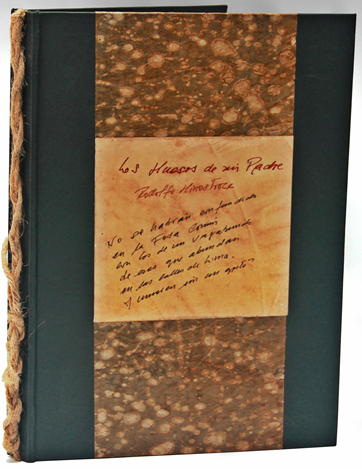 Los Huesos de mi Padre
Rodolfo Hinostroza
No se habrán confundido
en la Fosa Común
con los de un vagabundo
de esos que abundan
en las calles de Lima.
y mueren sin un grito.